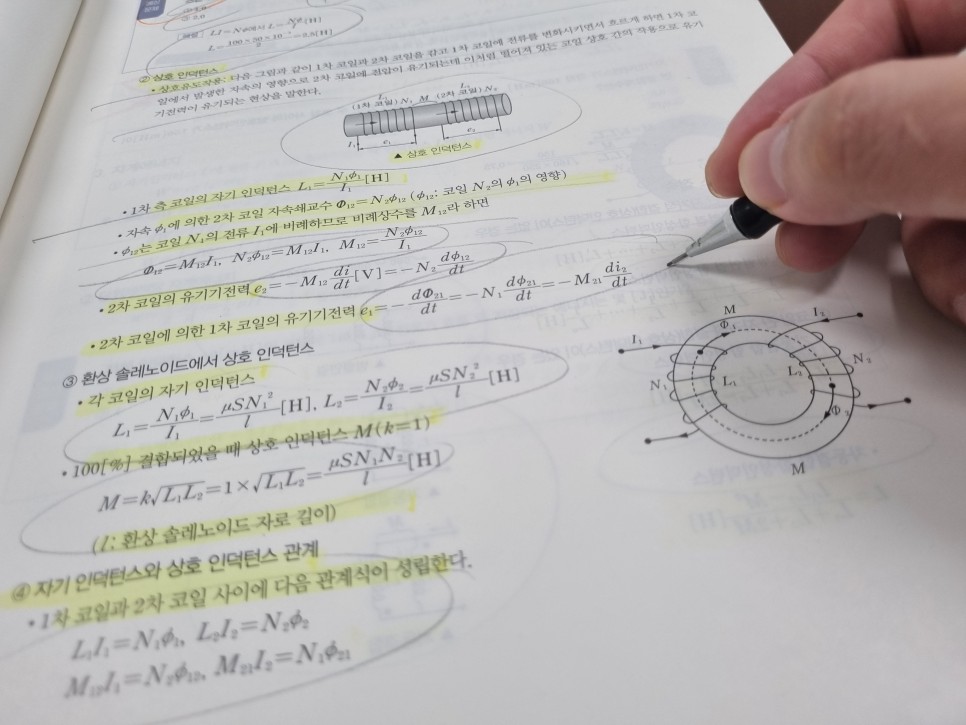 ② 2.0
LI=Nφ에서 L=Nφ/I[H]
② 상호 인덕턴스
• 상호유도작용: 다음 그림과 같이 1차 코일과 2차 코일을 감고 1차 코일에 전류를 변화시키면서 흐르게 하면 1차 코
일에서 발생한 자속의 영향으로 2차 코일에 전압이 유기되는데 이처럼 떨어져 있는 코일 상호 간의 작용으로 유기
기전력이 유기되는 현상을 말한다.
(1차 코일) N₁ M (2차 코일) N₂
I₁ e₁ e₂
▲ 상호 인덕턴스
• 1차 측 코일의 자기 인덕턴스 L₁=N₁φ₁/I₁[H]
• 자속 φ₁에 의한 2차 코일 자속쇄교수 Φ₁₂=N₂φ₁₂ (φ₁₂: 코일 N₂의 φ₁의 영향)
• φ₁₂는 코일 N₁의 전류 I₁에 비례하므로 비례상수를 M₁₂라 하면
Φ₁₂=M₁₂I₁, N₂φ₁₂=M₁₂I₁, M₁₂=N₂φ₁₂/I₁
• 2차 코일의 유기기전력 e₂=−M₁₂ di/dt[V]=−N₂ dφ₁₂/dt
• 2차 코일에 의한 1차 코일의 유기기전력 e₁=−dΦ₂₁/dt=−N₁ dφ₂₁/dt=−M₂₁ di₂/dt
③ 환상 솔레노이드에서 상호 인덕턴스
• 각 코일의 자기 인덕턴스
L₁=N₁φ₁/I₁=μSN₁²/l[H], L₂=N₂φ₂/I₂=μSN₂²/l[H]
• 100[%] 결합되었을 때 상호 인덕턴스 M(k=1)
M=k√L₁L₂=1×√L₁L₂=μSN₁N₂/l[H]
(l: 환상 솔레노이드 자로 길이)
M
I₁ Φ₁ I₂
N₁ L₁ L₂ N₂
Φ₂
M
④ 자기 인덕턴스와 상호 인덕턴스 관계
• 1차 코일과 2차 코일 사이에 다음 관계식이 성립한다.
L₁I₁=N₁φ₁, L₂I₂=N₂φ₂
M₁₂I₁=N₂φ₁₂, M₂₁I₂=N₁φ₂₁